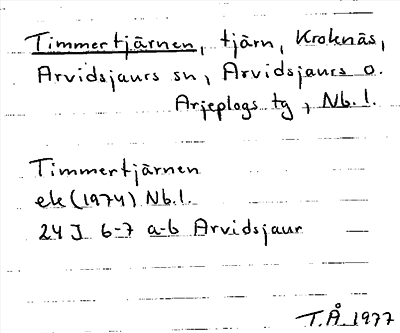 Timmertjärnen, tjärn, Kroknäs,
Arvidsjaurs sn, Arvidsjaurs o.
Arjeplogs tg, Nb. l.
Timmertjärnen
ek (1974) Nb. l.
24 J 6-7 a-b Arvidsjaur
T.Å 1977